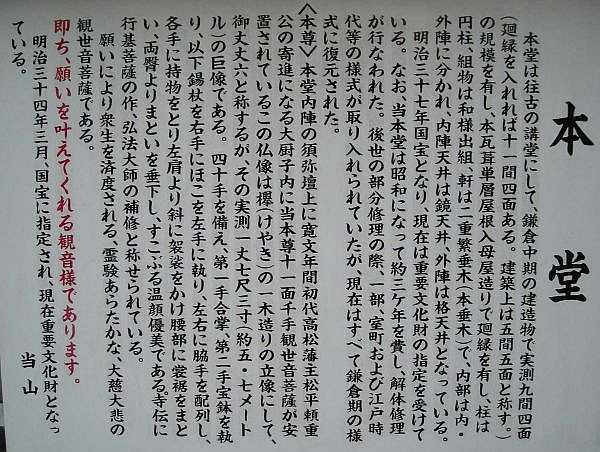 本堂
本堂は往古の講堂にして、鎌倉中期の建造物で実測九間四面
(廻縁を入れれば十一間四面ある。建築上は五間五面と称す。)
の規模を有し、本瓦葺単層屋根入母屋造りで廻縁を有し、柱は
円柱、組物は和様出組、軒は二重繁垂木(本垂木)で、内部は内・
外陣に分かれ、内陣天井は鏡天井、外陣は格天井となっている。
明治三十七年国宝となり、現在は重要文化財の指定を受けて
いる。なお、当本堂は昭和になって約三ケ年を費し、解体修理
が行なわれた。後世の部分修理の際、一部、室町および江戸時
代等の様式が取り入れられていたが、現在はすべて鎌倉期の様
式に復元された。
〈本尊〉本堂内陣の須弥壇上に寛文年間初代高松藩主松平頼重
公の寄進になる大厨子内に当本尊十一面千手観世音菩薩が安
置されているこの仏像は欅(けやき)の一木造りの立像にして、
御丈丈六と称するが、その実測一丈七尺三寸(約五・七メート
ル)の巨像である。四十手を備え、第一手合掌、第二手宝鉢を執
り、以下錫杖を右手にほこを左手に執り、左右に脇手を配列し、
各手に持物をとり左肩より斜に袈裟をかけ腰部に裳裾をまと
い、両臂よりまといを垂下し、すこぶる温顔優美である寺伝に
行基菩薩の作、弘法大師の補修と称せられている。
願いにより衆生を済度される、霊験あらたかな、大慈大悲の
観世音菩薩である。
即ち、願いを叶えてくれる観音様であります。
明治三十四年三月、国宝に指定され、現在重要文化財となっ
ている。
当山